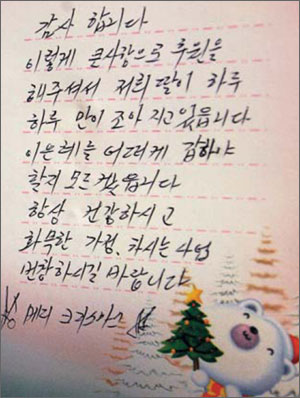 감사 합니다
이렇게 큰사랑으로 후원을
해주셔서 저희 딸이 하루
하루 만이 조아 지고 있읍니다
이은헤를 어떠게 갑하야
할지 모르겠읍니다
항상 건강하시고
화목한 가정, 하시는 사업
번창하시길 바랍니다
메리 크리스마스